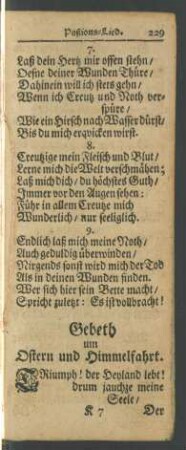 Paßions-Lied. 229
7.
Laß dein Hertz mir offen stehn/
Oefne deiner Wunden Thüre/
Dahinein will ich stets gehn/
Wenn ich Creutz und Noth ver-
spüre/
Wie ein Hirsch nach Wasser dürst/
Bis du mich erqvicken wirst.
8.
Creutzige mein Fleisch und Blut/
Lerne mich die Welt verschmähen;
Laß mich dich/ du höchstes Guth/
Immer vor den Augen sehen:
Führ in allem Creutze mich
Wunderlich/ nur seeliglich.
9.
Endlich laß mich meine Noth/
Auch geduldig überwinden/
Nirgends sonst wird mich der Tod
Als in deinen Wunden finden.
Wer sich hier sein Bette macht/
Spricht zuletzt: Es ist vollbracht!
Gebeth
um
Ostern und Himmelfahrt.
TRiumph! der Heyland lebt!
drum jauchze meine
Seele/
K 7 Der